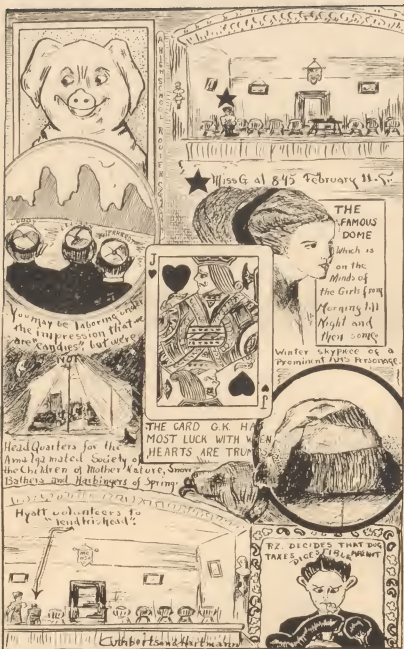 A HIGH SCHOOL
Miss G. at 845 February 11
THE
FAMOUS
DOME
Which is
on the
Minds of
the Girls from
Morning till
Night and
then some
Winter skypiece of a
Prominent AHS Personage.
You may be laboring under
the impression that we
are "candies" but we're
NOT
J
J
THE CARD G.K. HAS
MOST LUCK WITH WHEN
HEARTS ARE TRUMP
Head Quarters for the
Amalgamated Society of
the Children of Mother Nature, Snow
Bathers and Harbingers of Spring.
Hyatt volunteers to
"lend his head".
P.Z. DECIDES THAT DOG
TAXES DIGESTIBLE
Cuthbertson & Hartmann